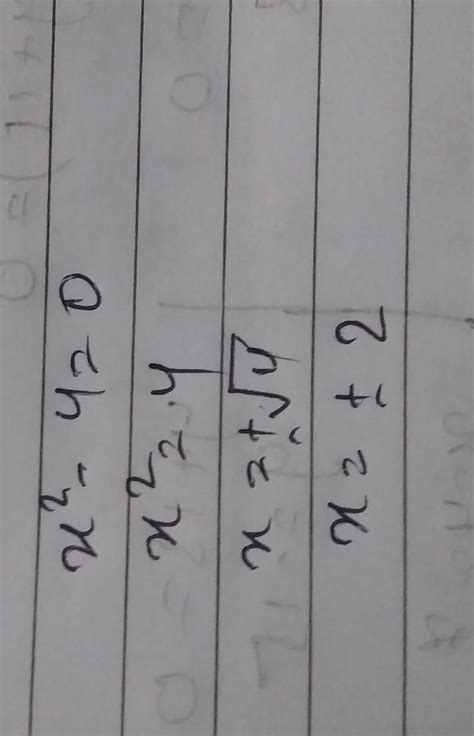 x² - 4 = 0
x² = 4
x = ±√4
x = ± 2